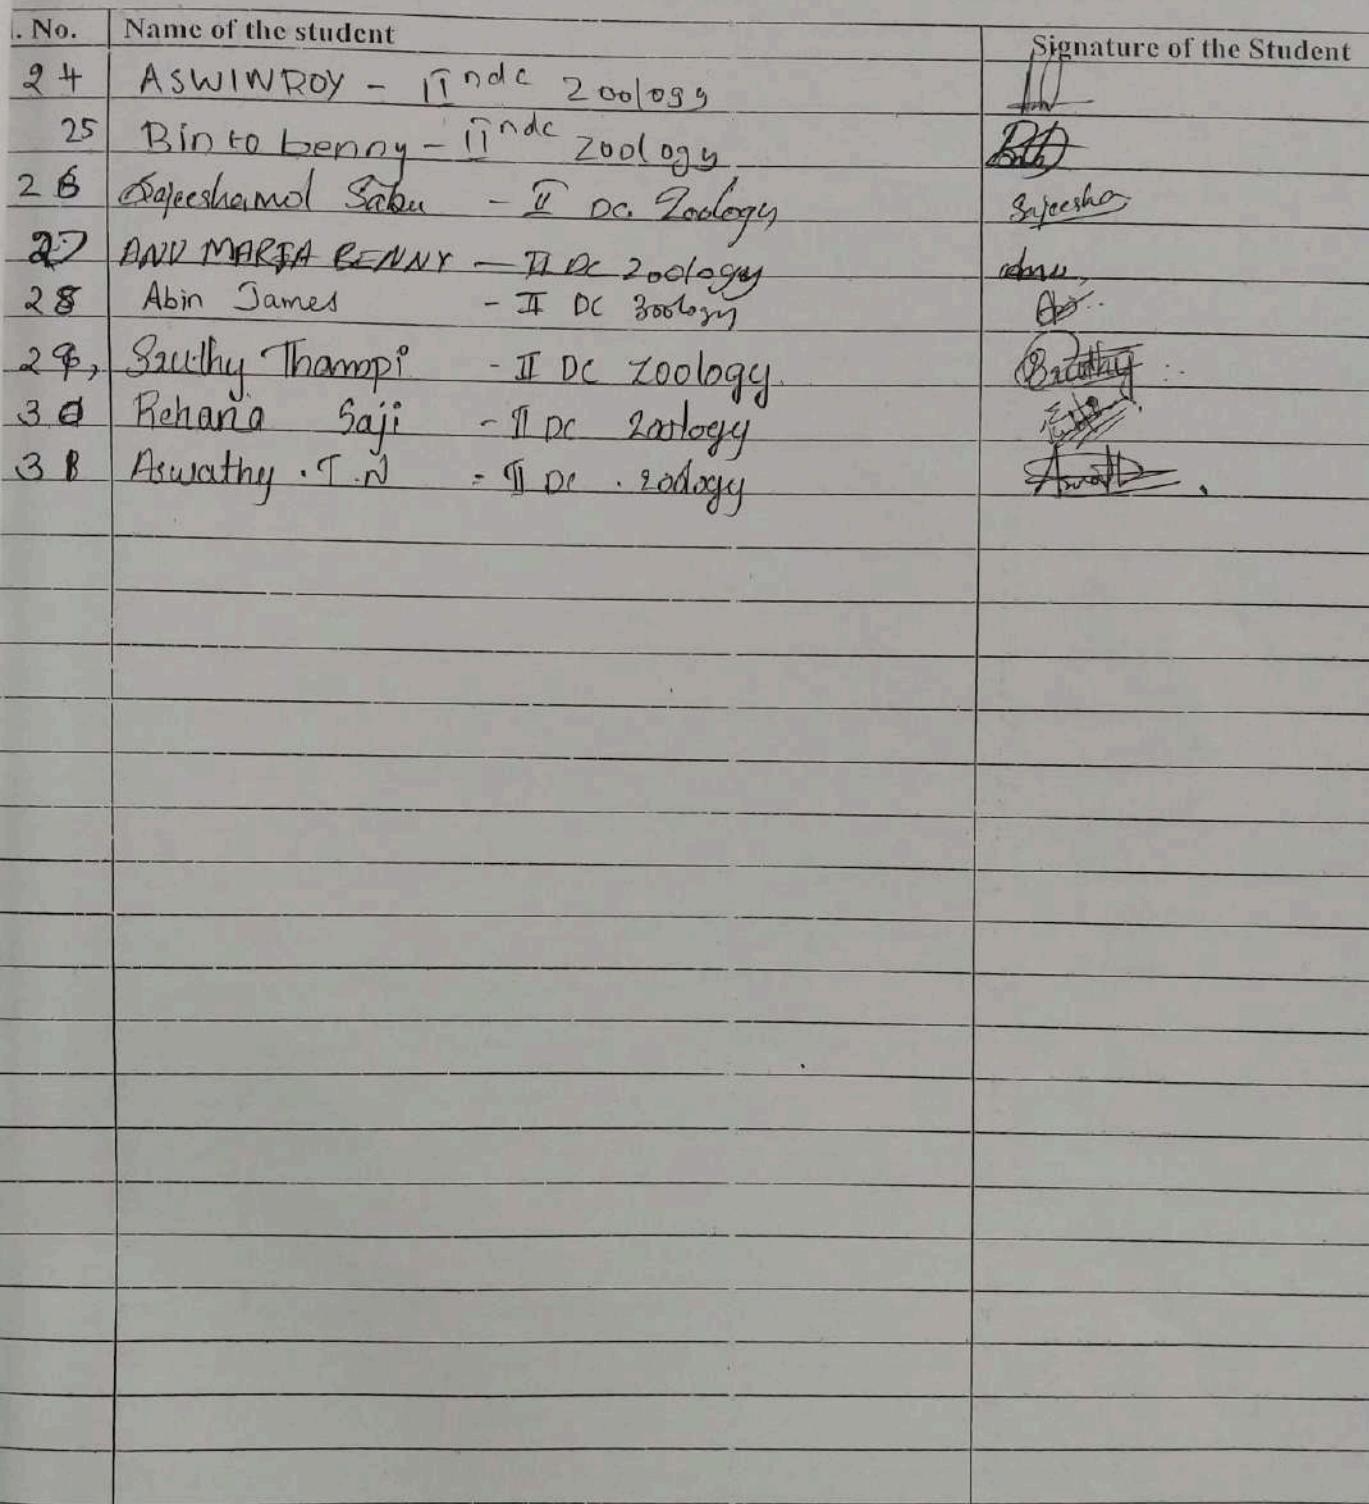 . No. Name of the student Signature of the Student
24 ASWINROY - II ndc Zoology
25 Binto benny - II ndc Zoology
26 Sajeeshamol Sabu - II DC. Zoology Sajeesha
27 ANU MARIA BENNY - II DC Zoology Anu
28 Abin James - II DC Zoology
29, Sruthy Thampi - II DC Zoology. Sruthy
30 Rehana Saji - II DC Zoology
31 Aswathy . T. N - II DC . Zoology